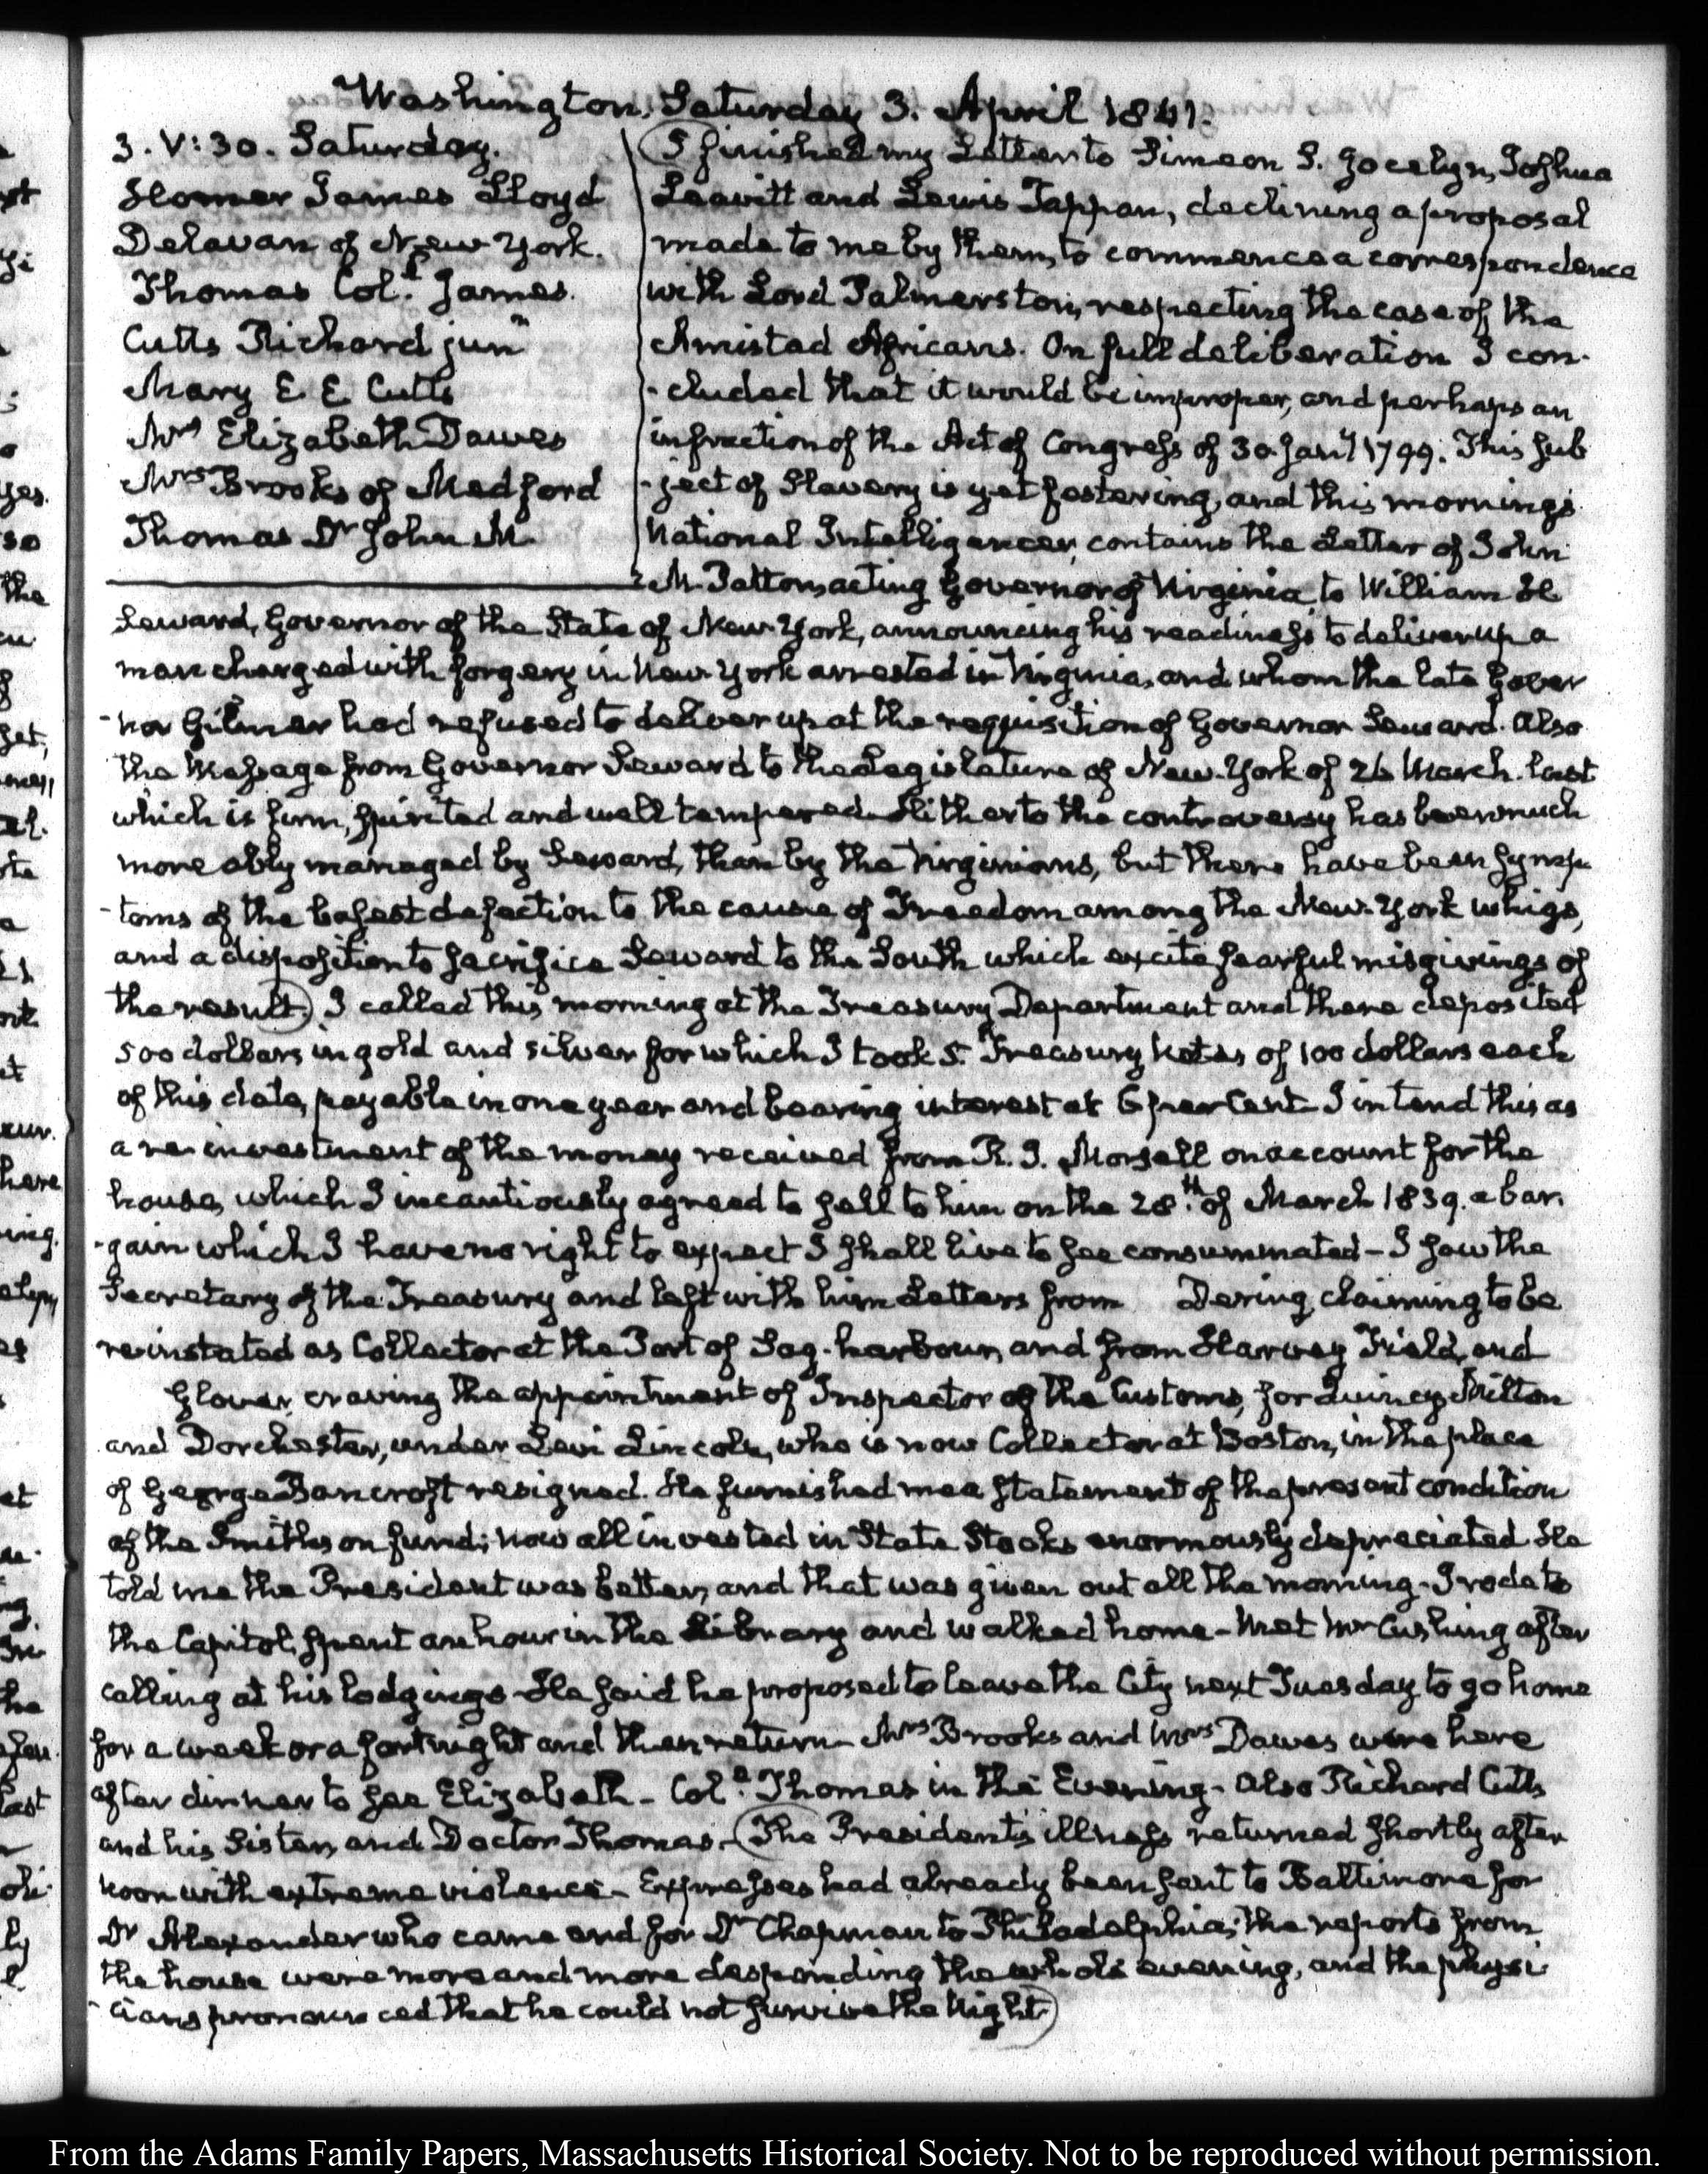 Washington, Saturday 3. April 1841.
3. V:30. Saturday.
Homer James Lloyd
Delavan of New York.
Thomas Col.l James.
Cutts Richard junr
Mary E. E. Cutts
Mrs Elizabeth Dawes
Mrs Brooks of Medford
Thomas Dr John M.
I finished my Letter to Simeon S. Jocelyn, Joshua
Leavitt and Lewis Tappan, declining a proposal
made to me by them, to commence a correspondence
with Lord Palmerston, respecting the case of the
Amistad Africans. On full deliberation I con-
-cluded that it would be improper, and perhaps an
infraction of the Act of Congress of 30. Jany 1799. This sub
-ject of Slavery is yet festering, and this morning's
National Intelligencer, contains the Letter of John
M. Patton, acting Governor of Virginia, to William H
Seward, Governor of the State of New-York, announcing his readiness to deliver up a
man charged with forgery in New-York arrested in Virginia, and whom the late Gover
-nor Gilmer had refused to deliver up at the requisition of Governor Seward. Also
the Message from Governor Seward to the Legislature of New-York of 26 March. last
which is firm, spirited and well tempered. Hitherto the controversy has been much
more ably managed by Seward, than by the Virginians, but there have been symp
-toms of the basest defection to the cause of Freedom among the New-York whigs,
and a disposition to sacrifice Seward to the South which excite fearful misgivings of
the result. I called this morning at the Treasury Department and there deposited
500 dollars in gold and silver for which I took 5. Treasury Notes of 100 dollars each
of this date, payable in one year and bearing interest at 6 per Cent. I intend this as
a re-investment of the money received from R. J. Morsell on account for the
house, which I incautiously agreed to sell to him on the 28.th of March 1839. a bar
-gain which I have no right to expect I shall live to see consummated - I saw the
Secretary of the Treasury and left with him Letters from Dering, claiming to be
reinstated as Collector at the Port of Sag-harbour, and from Harvey Field, and
Glover, craving the appointment of Inspector of the Customs, for Quincy, Milton
and Dorchester, under Levi Lincoln, who is now Collector at Boston, in the place
of George Bancroft resigned. He furnished me a statement of the present condition
of the Smithson fund; now all invested in State Stocks enormously depreciated. He
told me the President was better, and that was given out all the morning - I rode to
the Capitol, spent an hour in the Library and walked home - Met Mr Cushing after
calling at his lodgings - He said he proposed to leave the City next Tuesday to go home
for a week or a fortnight and then return - Mrs Brooks and Mrs Dawes were here
after dinner to see Elizabeth - Col. Thomas in the Evening - Also Richard Cutts
and his Sister, and Doctor Thomas. The President's illness returned shortly after
noon with extreme violence - Expresses had already been sent to Baltimore for
Dr Alexander who came and for Dr Chapman to Philadelphia; the reports from
the house were more and more desponding the whole evening, and the physi
-cians pronounced that he could not survive the Night.
From the Adams Family Papers, Massachusetts Historical Society. Not to be reproduced without permission.